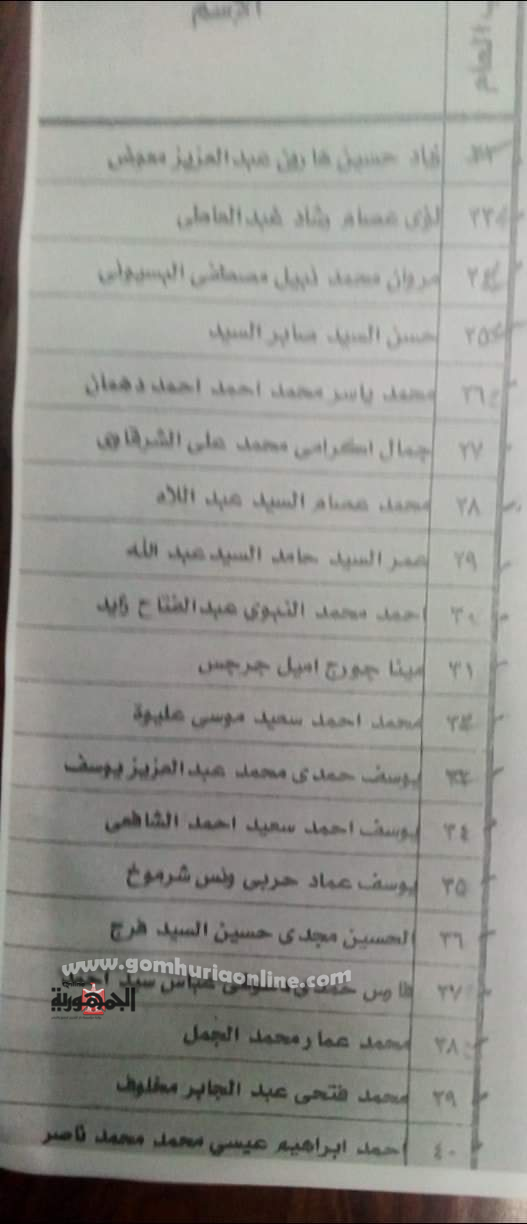 الإسم
حسين هارون عبدالعزيز
٢٣ لؤى عصام رشاد عبدالعاطى
٢٤ مروان محمد نبيل مصطفى البسيونى
٢٥ حسن السيد صابر السيد
٢٦ محمد ياسر محمد احمد احمد دهمان
٢٧ جمال اكرامى محمد على الشرقاوى
٢٨ محمد عصام السيد عبد اللاه
٢٩ عمر السيد حامد السيد عبد الله
٣٠ احمد محمد النبوى عبدالفتاح زايد
٣١ مينا جورج اميل جرجس
٣٢ محمد احمد سعيد موسى عليوة
٣٣ يوسف حمدى محمد عبدالعزيز يوسف
٣٤ يوسف احمد سعيد احمد الشافعى
٣٥ يوسف عماد حربى ونس شرموخ
٣٦ الحسين مجدى حسين السيد فرج
www.gomhuriaonline.com
الجمهورية
٣٧ عباس سيد احمد
٣٨ محمد عمار محمد الجمل
٣٩ محمد فتحى عبد الجابر مخلوف
٤٠ احمد ابراهيم عيسى محمد محمد ناصر